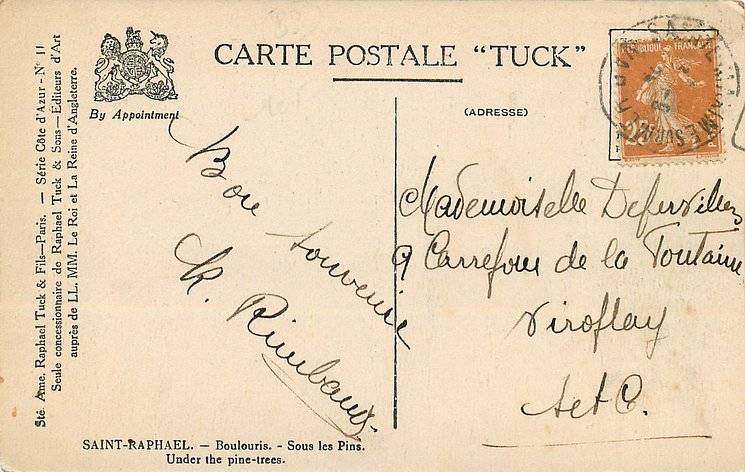 Sté. Ame. Raphael Tuck & Fils—Paris. — Série Côte d'Azur - No 11
Seule concessionnaire de Raphael Tuck & Sons—Éditeurs d'Art
auprès de LL. MM. Le Roi et La Reine d'Angleterre.
By Appointment
CARTE POSTALE "TUCK"
(ADRESSE)
Bon souvenir
R. Rimbaud
Mademoiselle
9 Carrefour de la Fontaine
Viroflay
S et O.
SAINT-RAPHAEL. — Boulouris. - Sous les Pins.
Under the pine-trees.